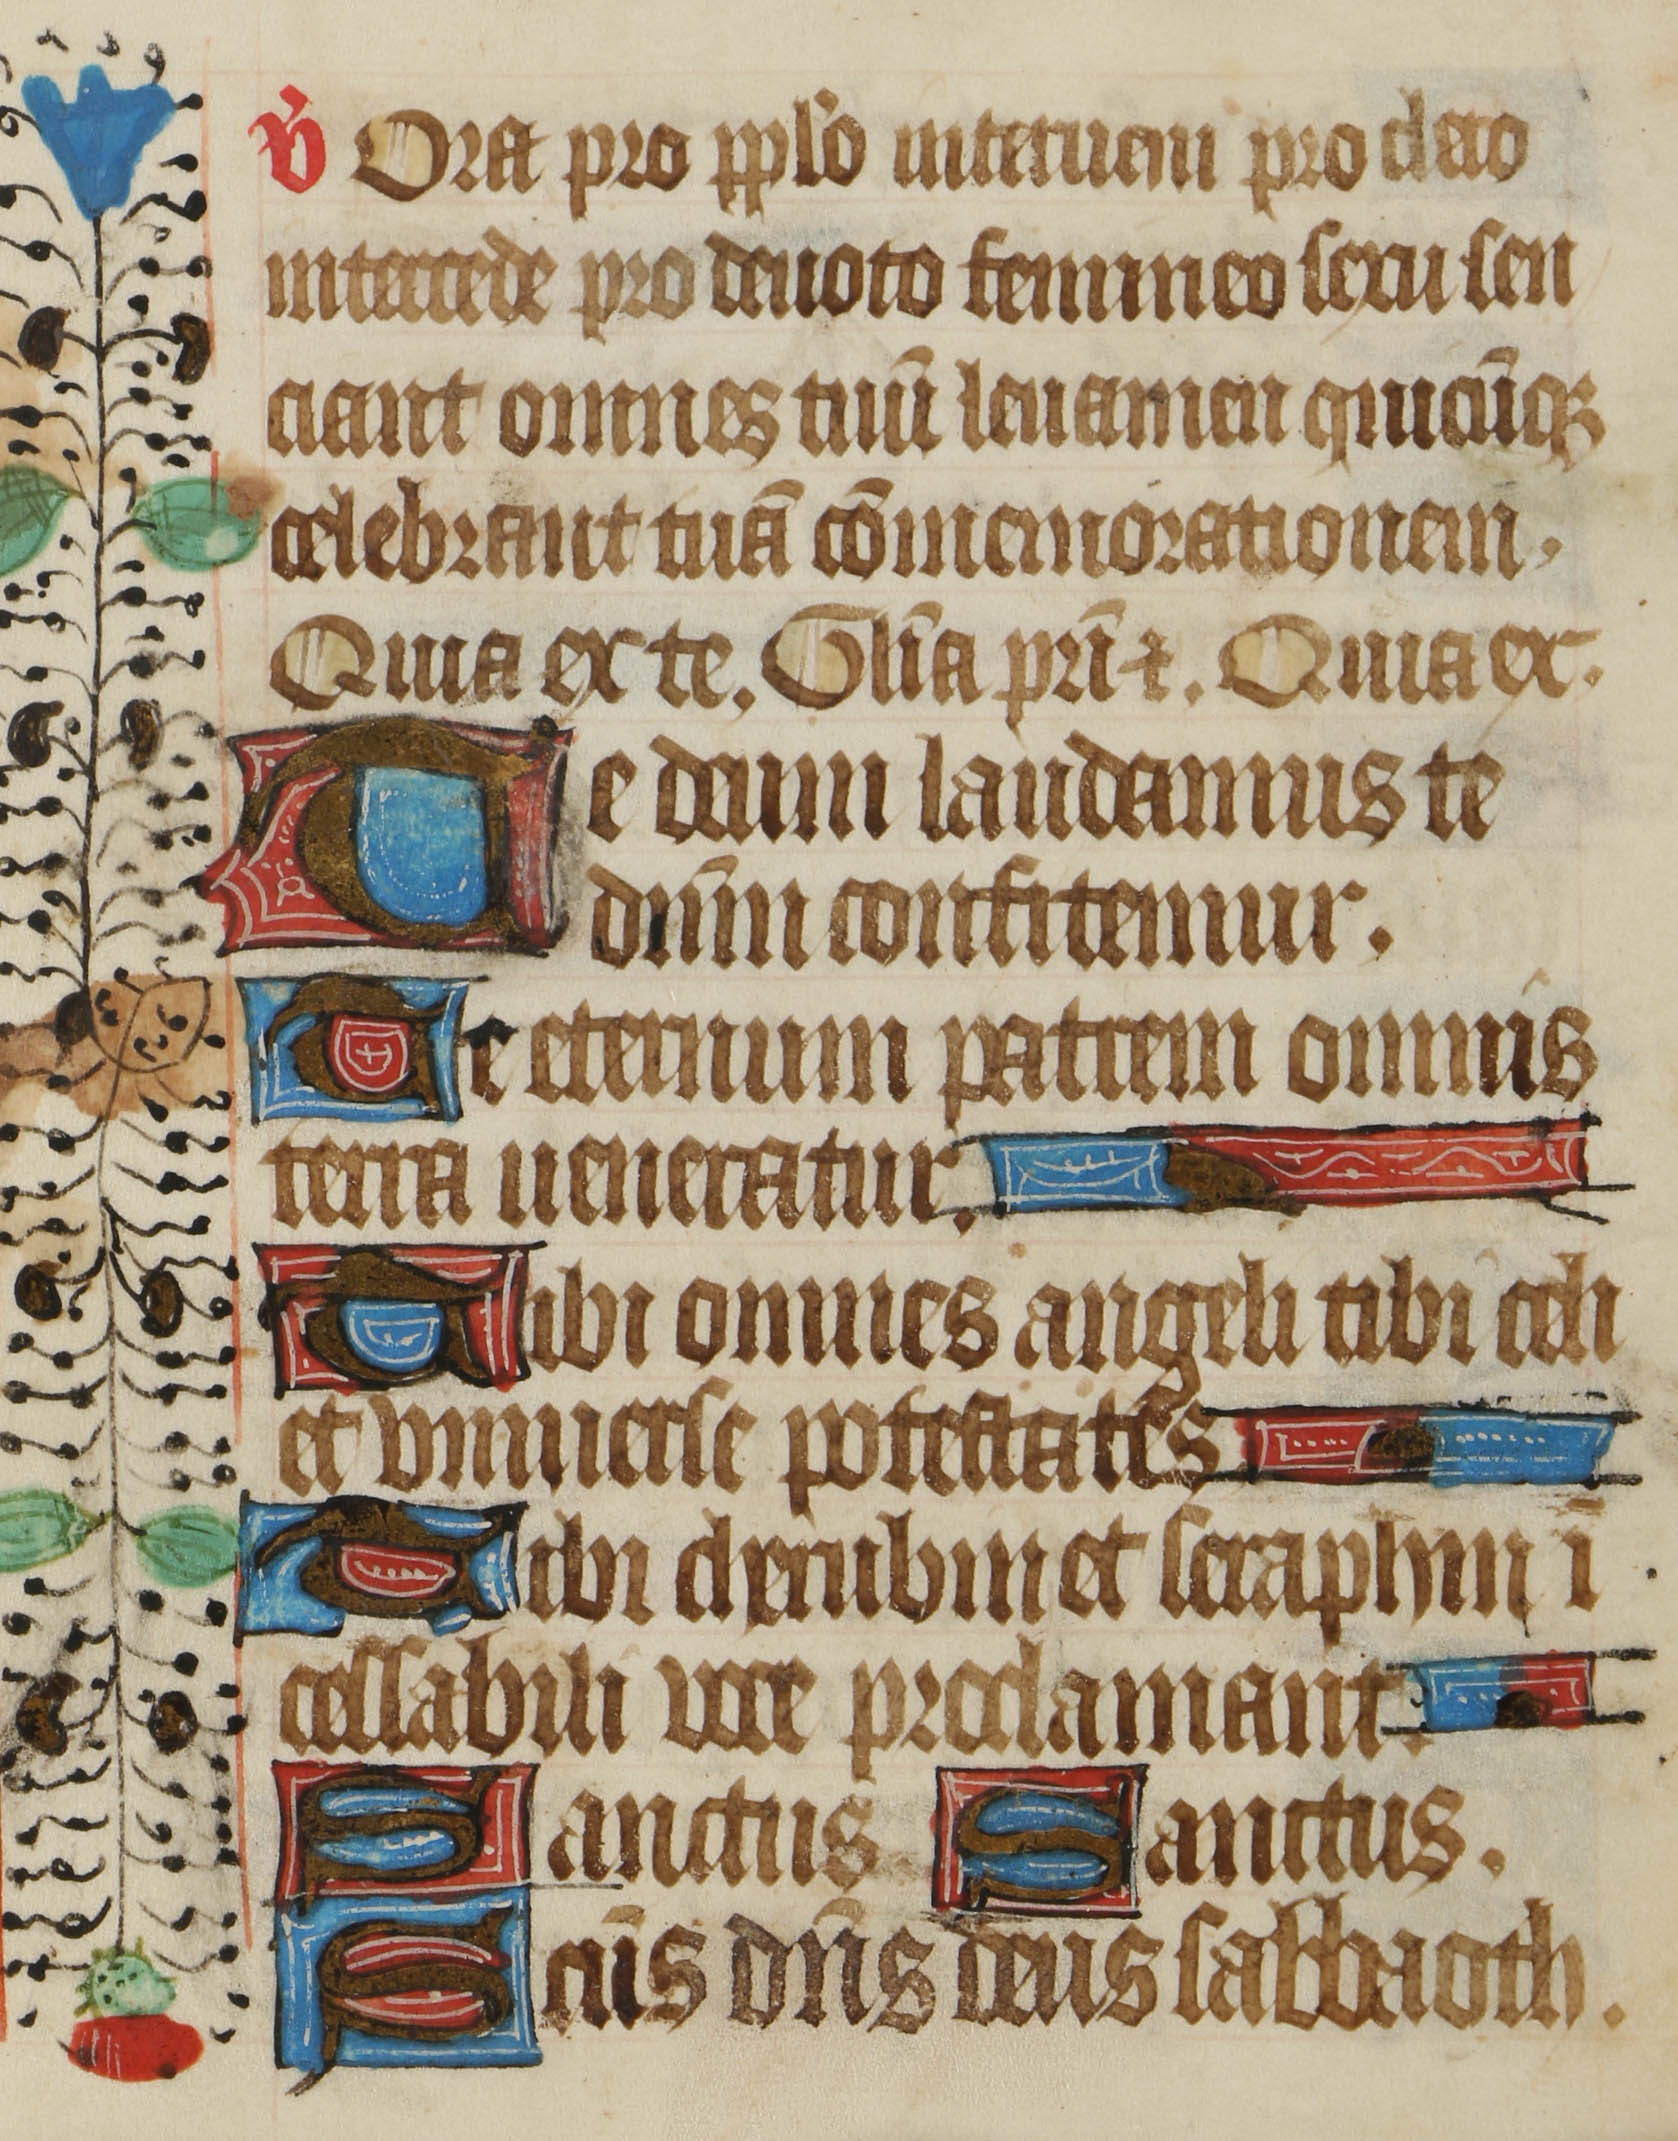 V̉ Ora pro pplo̕ interueni pro clero
intercede pro deuoto femineo sexu sen
ciant omnes tuū leuamen quicūqꝫ
celebrant tuā cōmemorationem.
Quia ex te. Glīa prī ⁊. Quia ex.
Te deum laudamus te
dn̄m confitemur.
Te eternum patrem omnis
terra ueneratur.
Tibi omnes angeli tibi celi
et vniuerse potestates
Tibi cherubin et seraphin ī
cessabili uoce proclamant.
Sanctus. Sanctus.
Sctūs dn̄s deus sabbaoth.